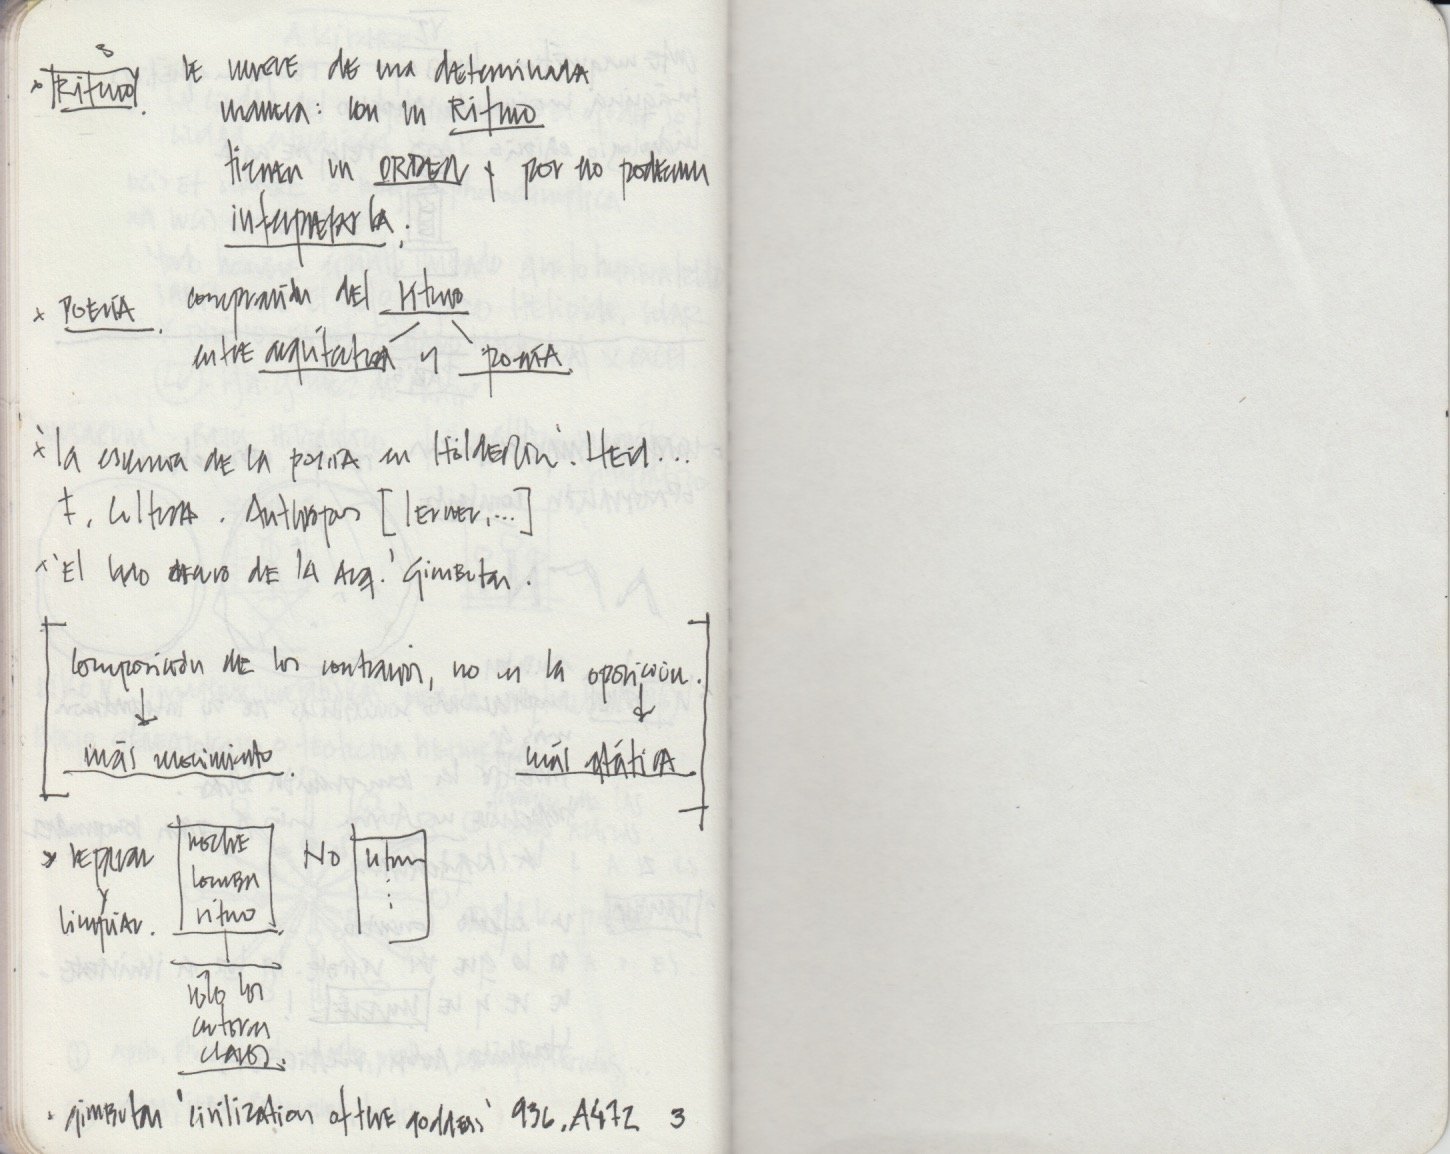 x Ritmo. se mueve de una determinada
manera: con un Ritmo
tienen un ORDEN y por no podemos
interpretarla.
x POESÍA. comparación del ritmo
entre arquitectura y poesía.
x 'la esencia de la poesía en Hölderlin'. Heid...
t. Cultura. Anthropos [Lerner,...]
x 'El lado oscuro de la Arq.' Gimbutas.
composición de los contrarios, no en la oposición.
más movimiento. más estática.
x separar y limpiar.
noche
sombra
ritmo.
No
ritmo
sólo los
autores
claves.
· gimbutas 'civilization of the goddess' 936.A472 3